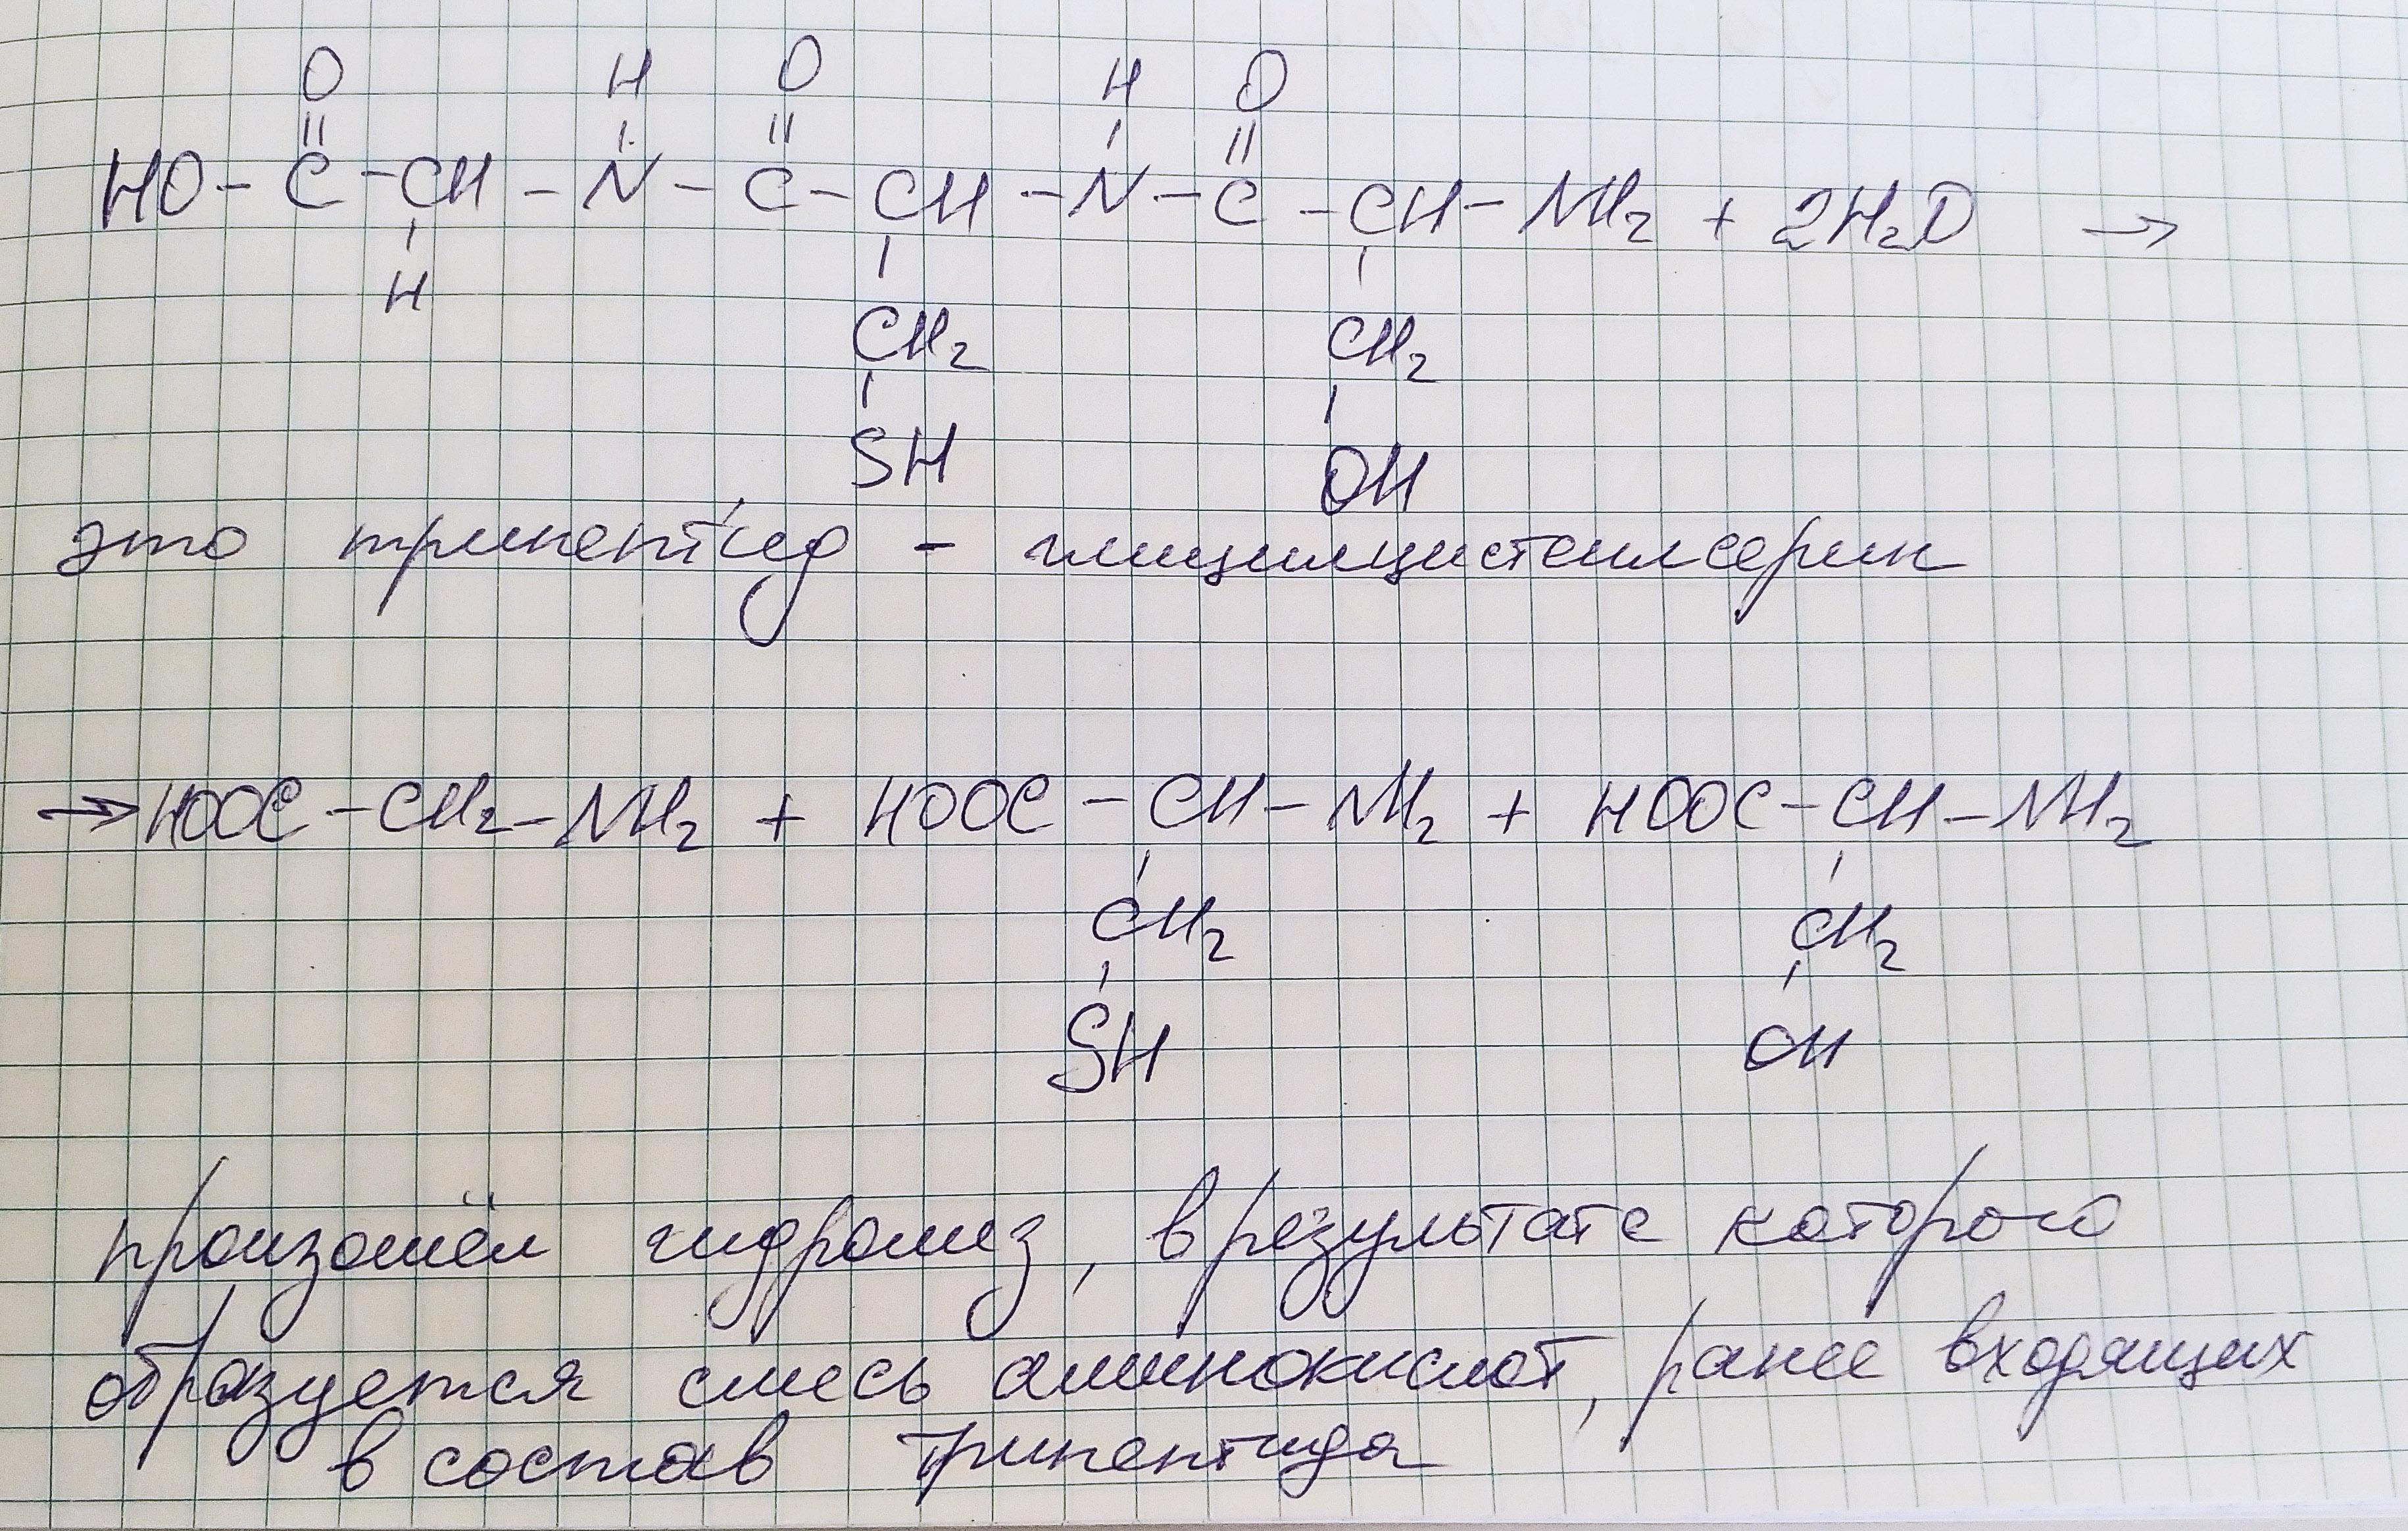 O H O H O
HO - C - CH - N - C - CH - N - C - CH - NH₂ + 2H₂O →
H
CH₂ CH₂
SH OH
это трипептид - глицилцистеилсерин
→ HOOC - CH₂ - NH₂ + HOOC - CH - NH₂ + HOOC - CH - NH₂
CH₂ CH₂
SH OH
произошёл гидролиз, в результате которого
образуется смесь аминокислот, ранее входящих
в состав трипептида